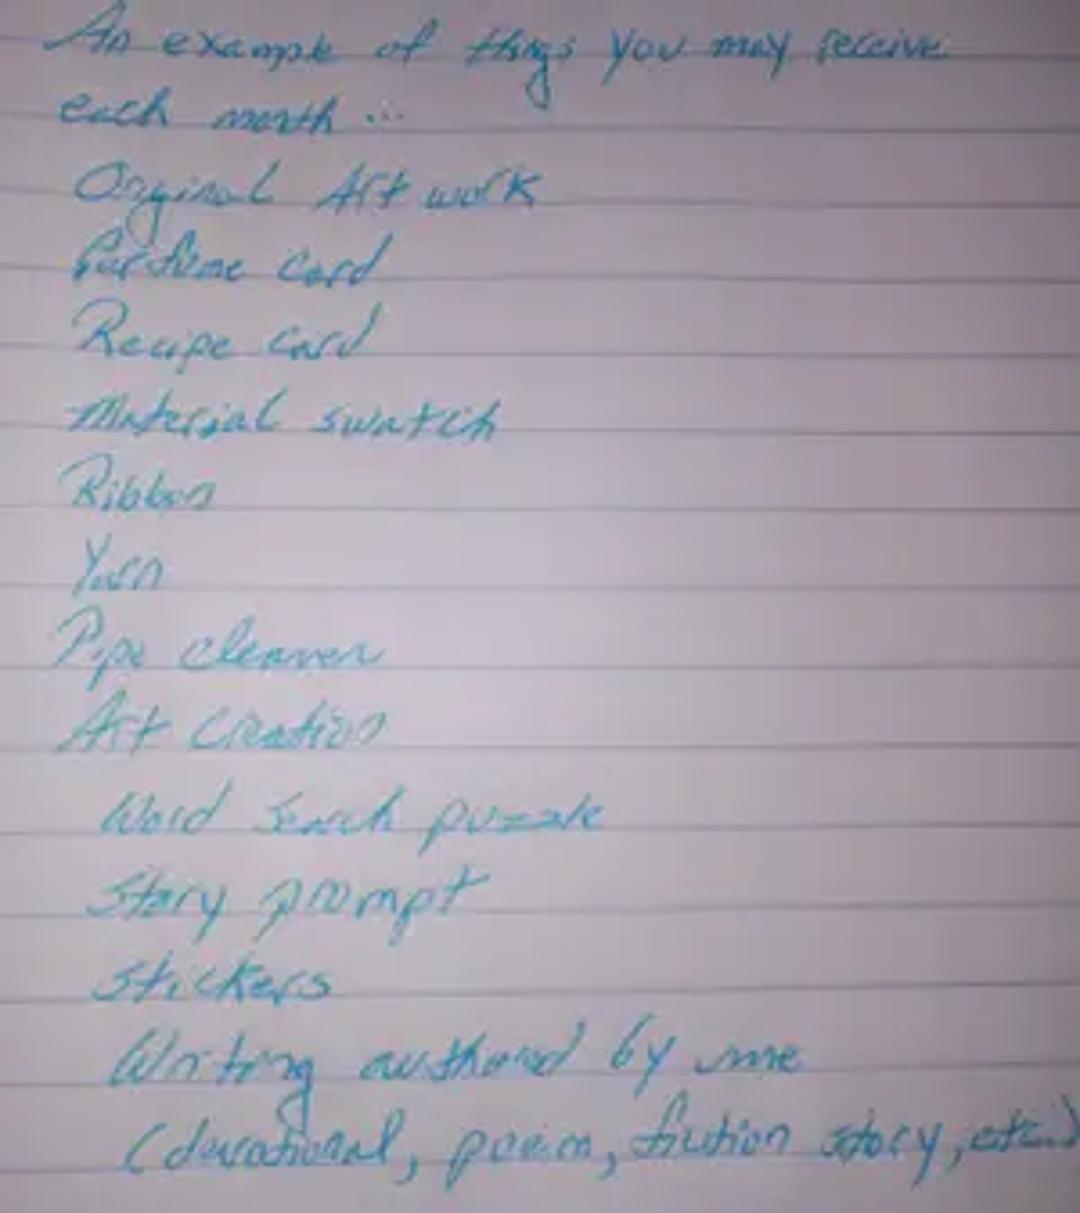 An example of things you may receive
each month...
Orginal Art work
Perfume card
Recipe card
Material swatch
Ribbon
Yarn
Pipe cleaner
Art creation
Word search puzzle
Story prompt
Stickers
Writing authored by me
(devotional, poem, fiction story, etc.)